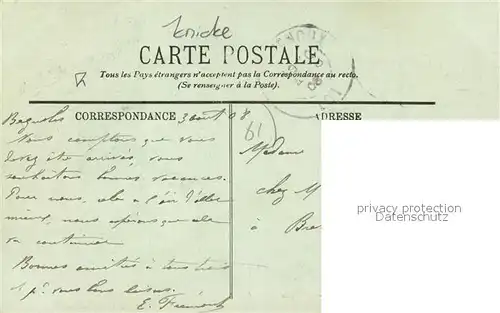 Knicke
CARTE POSTALE
Tous les Pays étrangers n'acceptent pas la Correspondance au recto.
(Se renseigner à la Poste).
CORRESPONDANCE
ADRESSE
Bagnoles 3 août 08
Nous comptons que vous
êtes arrivés, vous
souhaitons bonnes vacances.
Pour nous, cela a l'air d'aller
mieux, nous espérons que cela
va continuer
Bonnes amitiés à tous trois
et pr vous bons baisers.
E.
91
Madame
chez M
à Bre
privacy protection
Datenschutz